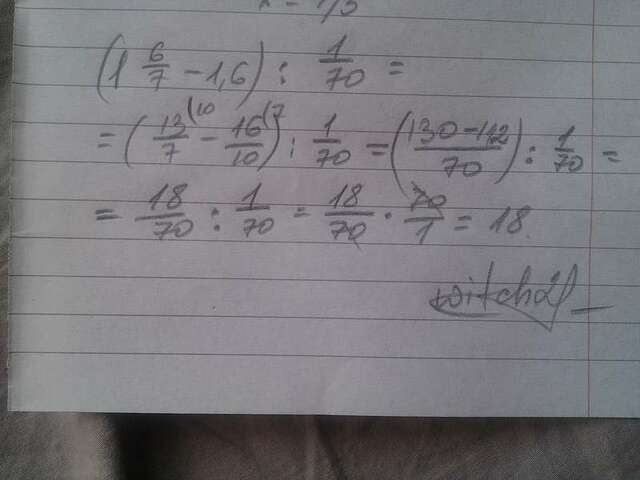 x = 1/3
(1 6/7 - 1,6) : 1/70 =
= (13/7 (10 - 16/10 (7) : 1/70 = (130-112/70) : 1/70 =
= 18/70 : 1/70 = 18/70 · 70/1 = 18.